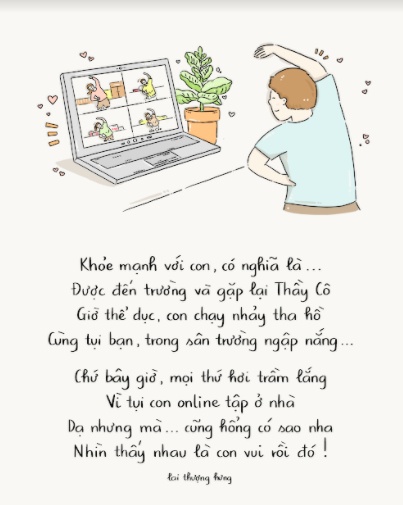 Khỏe mạnh với con, có nghĩa là...
Được đến trường và gặp lại Thầy Cô
Giờ thể dục, con chạy nhảy tha hồ
Cùng tụi bạn, trong sân trường ngập nắng...
Chứ bây giờ, mọi thứ hơi trầm lắng
Vì tụi con online tập ở nhà
Dạ nhưng mà... cũng hổng có sao nha
Nhìn thấy nhau là con vui rồi đó!
lai thượng hưng